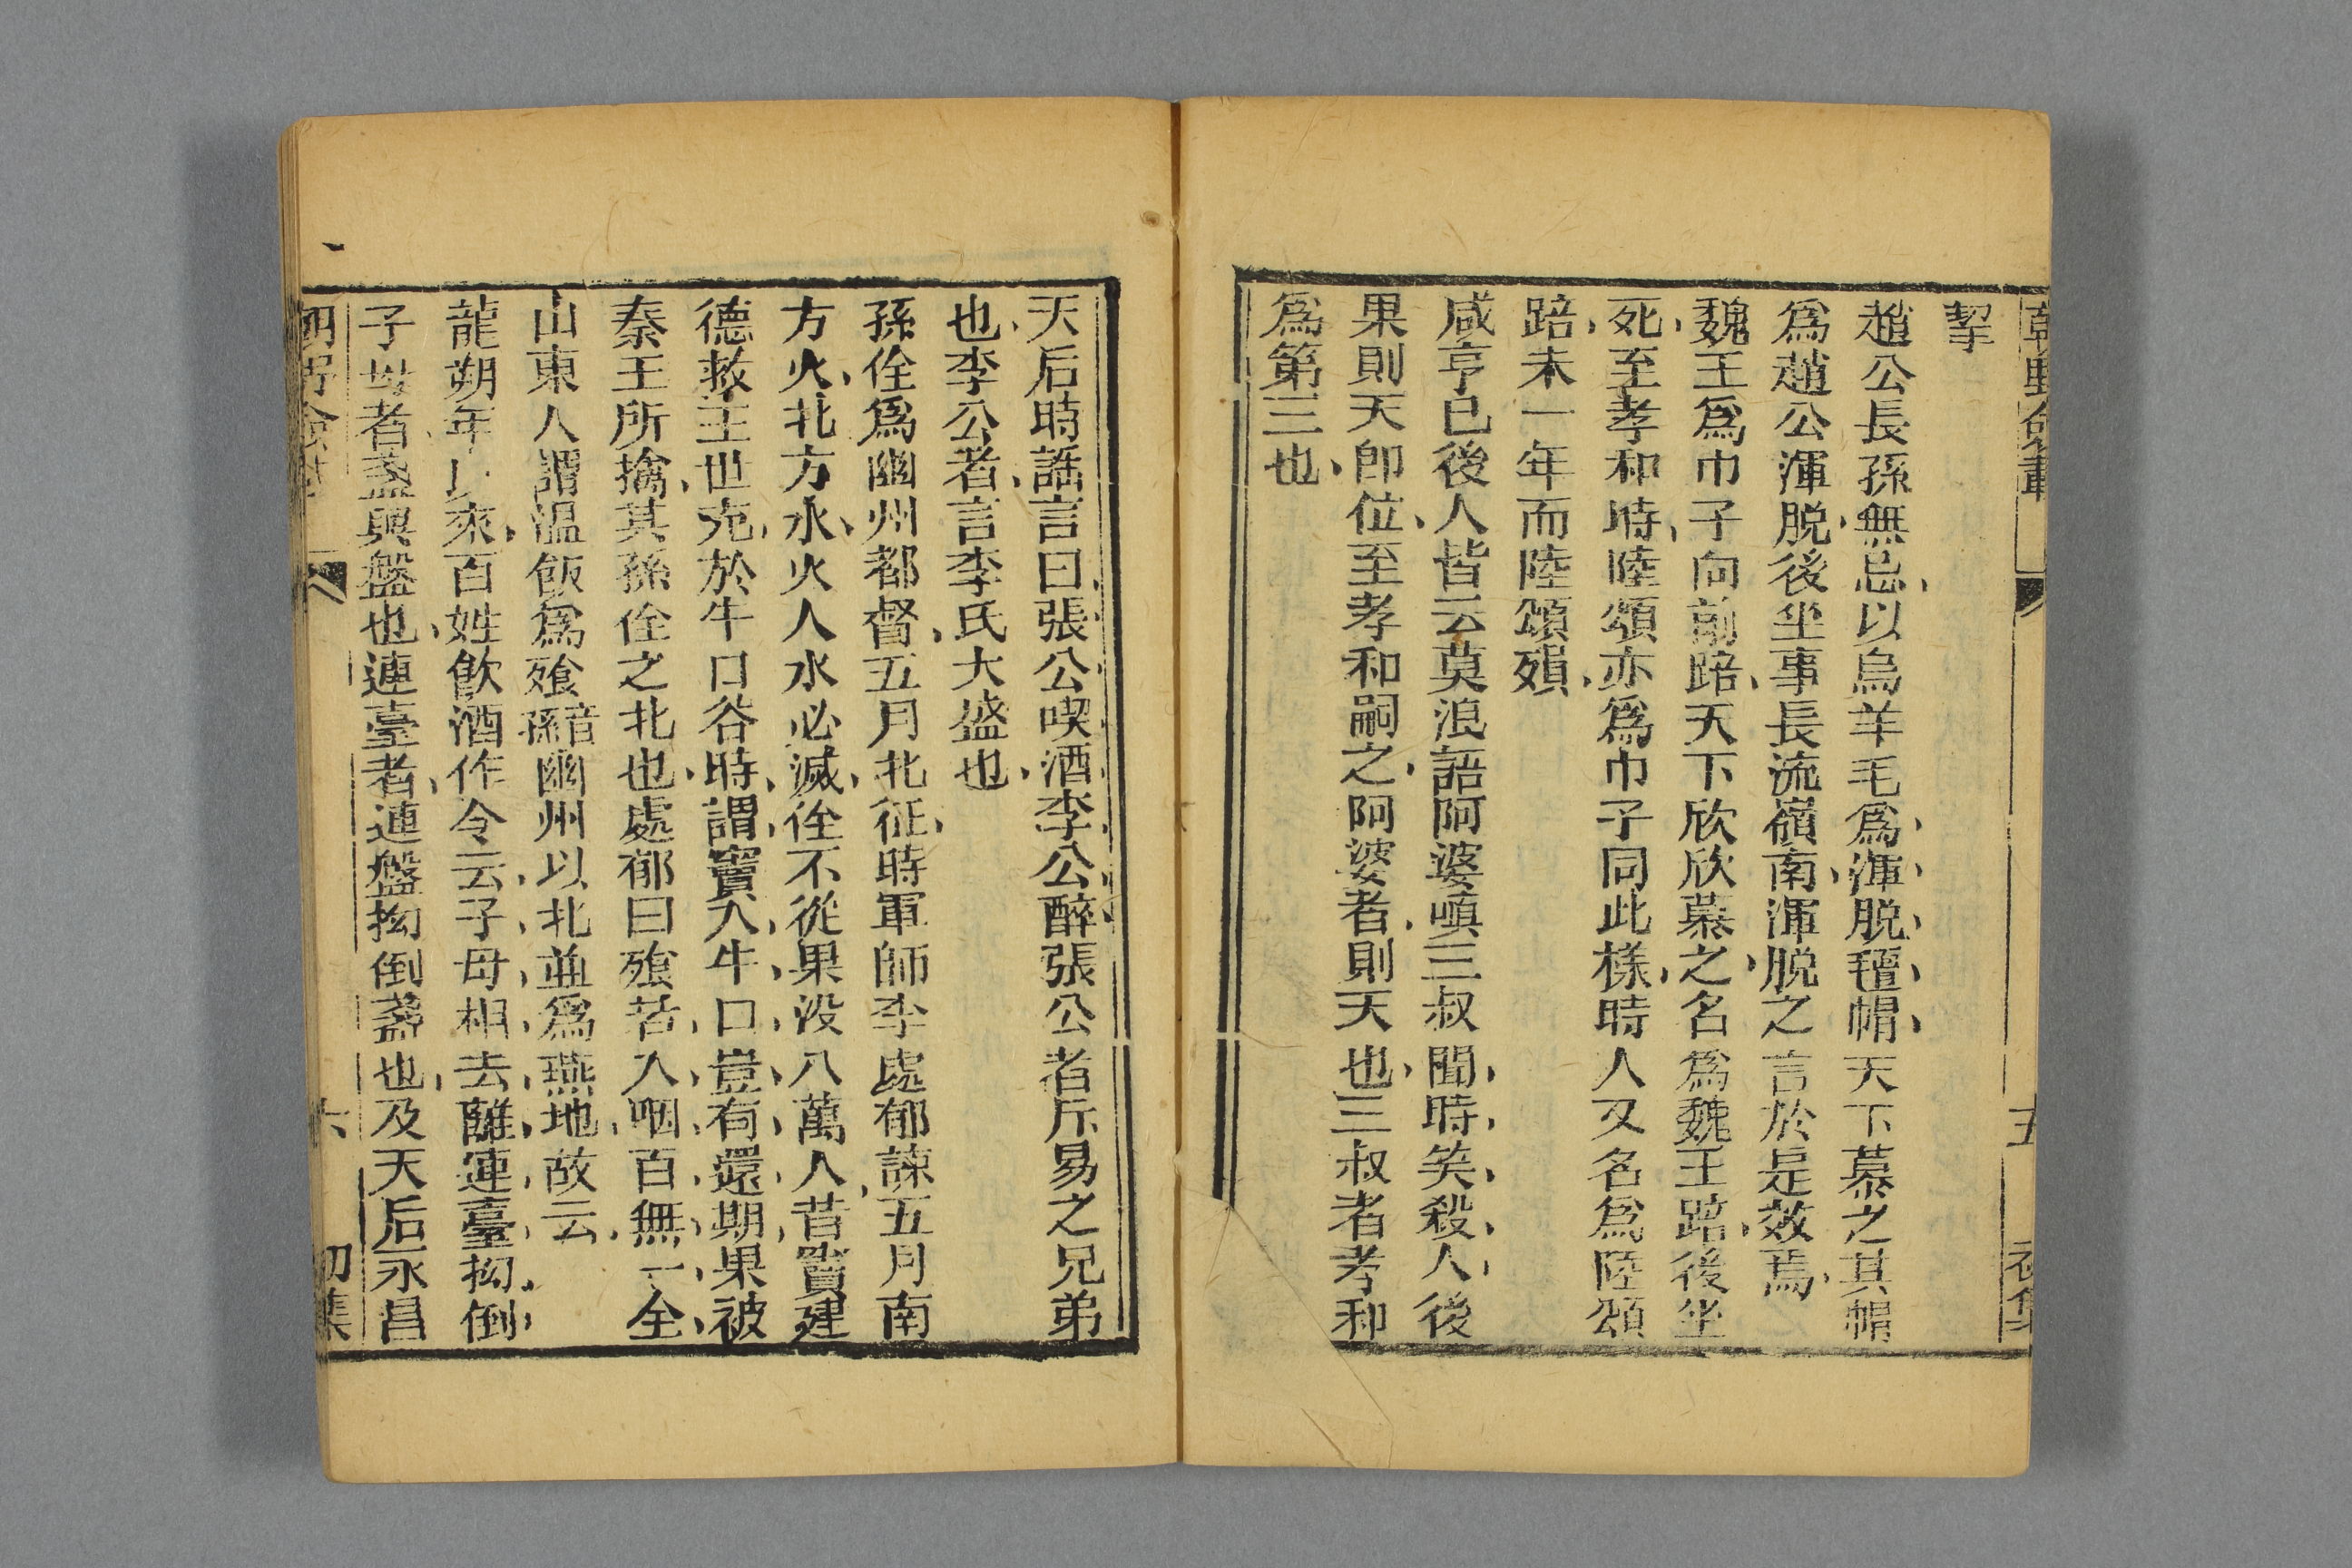 挐
趙公長孫無忌以烏羊毛爲渾脱氊帽天下慕之其帽
爲趙公渾脱後坐事長流嶺南渾脱之言於是效焉
魏王爲巾子向前踣天下欣欣慕之名爲魏王踣後坐
死至孝和時陸頌亦爲巾子同此樣時人又名爲陸頌
踣未一年而陸頌殞
咸亨已後人皆云莫浪語阿婆嗔三叔聞時笑殺人後
果則天即位至孝和嗣之阿婆者則天也三叔者孝和
爲第三也
五
天后時謡言曰張公喫酒李公醉張公者斥易之兄弟
也李公者言李氏大盛也
孫佺爲幽州都督五月北征時軍師李處郁諫五月南
方火北方水火入水必滅佺不從果没八萬人昔竇建
德救王世充於牛口谷時謂竇入牛口豈有還期果被
秦王所擒其孫佺之北也處郁曰飱若入咽百無一全
山東人謂温飯爲飱音孫幽州以北並爲燕地故云
龍朔年以來百姓飲酒作令云子母相去離連臺拗倒
子母者盞與盤也連臺者連盤拗倒盞也及天后永昌
六
初集